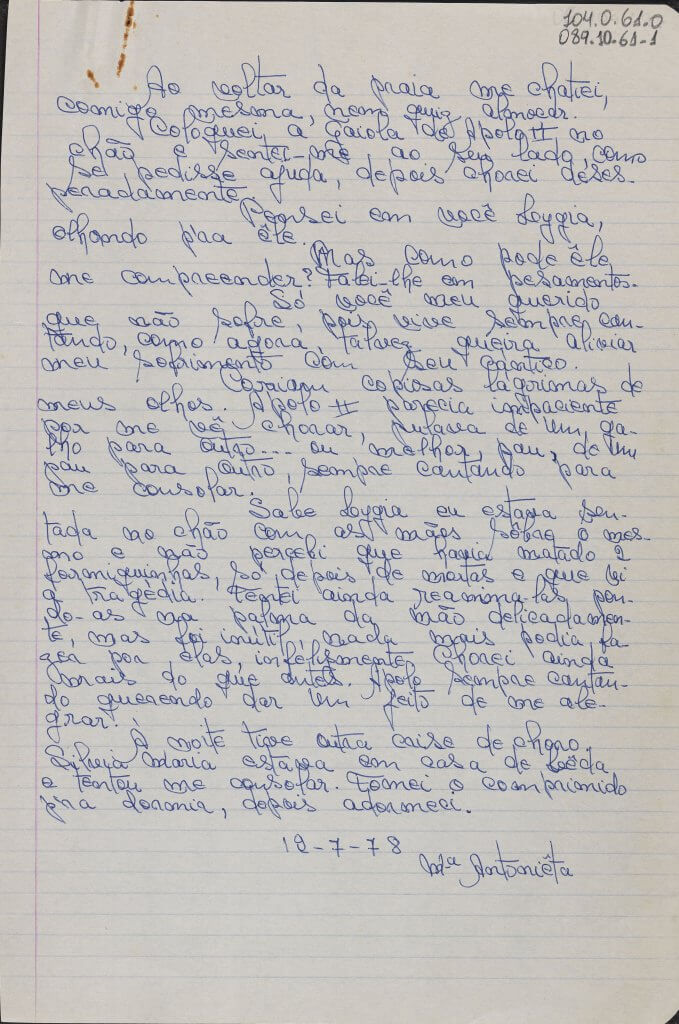 104.0.61.0
089.10.61-1
Ao voltar da praia me chatiei,
comigo mesma, nem quiz almoçar.
Coloquei a gaiola de Apolo II no
chão e sentei-me ao seu lado, como
se pedisse ajuda, depois chorei deses-
peradamente.
Pensei em você Lyggia,
olhando p'ra êle.
Mas como pode êle
me compreender? Falei-lhe em pesamentos.
Só você meu querido
que não sofre, pois vive sempre can-
tando, como agora, talvez queira aliviar
meu sofrimento com seu cântico.
Corriam copiosas lágrimas de
meus olhos. Apolo II parecia impaciente
por me vê chorar, pulava de um ga-
lho para outro... ou melhor, pau, de um
pau para outro, sempre cantando para
me consolar.
Sabe Lyggia eu estava sen-
tada no chão com as mãos sôbre o mes-
mo e não percebi que havia matado 2
formiguinhas, só depois de mortas e que vi
a tragédia. Tentei ainda reanima-las pon-
do-as na palma da mão delicadamen-
te, mas foi inútil, nada mais podia fa
zer por elas, infelismente. Chorei ainda
mais do que antes. Apolo sempre cantan-
do querendo dar um jeito de me ale-
grar.
À noite tive outra crise de choro.
Silvia Maria estava em casa de
e tentou me consolar. Tomei o comprimido
p'ra dormir, depois adormeci.
12-7-78
Mª Antoniêta